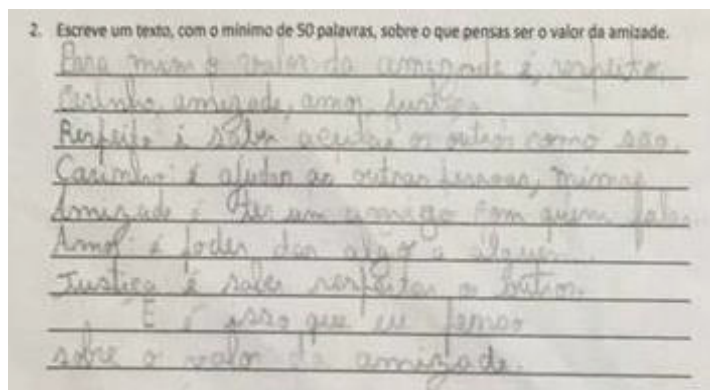 2. Escreve um texto, com o mínimo de 50 palavras, sobre o que pensas ser o valor da amizade.
Para mim o valor da amizade é, respeito,
carinho, amizade, amor, justiça.
Respeito é saber aceitar os outros como são.
Carinho é ajudar as outras pessoas, mimar
Amizade é ter um amigo com quem falar
Amor é poder dar algo a alguém.
Justiça é saber respeitar o outro.
E é isso que eu penso
sobre o valor da amizade.